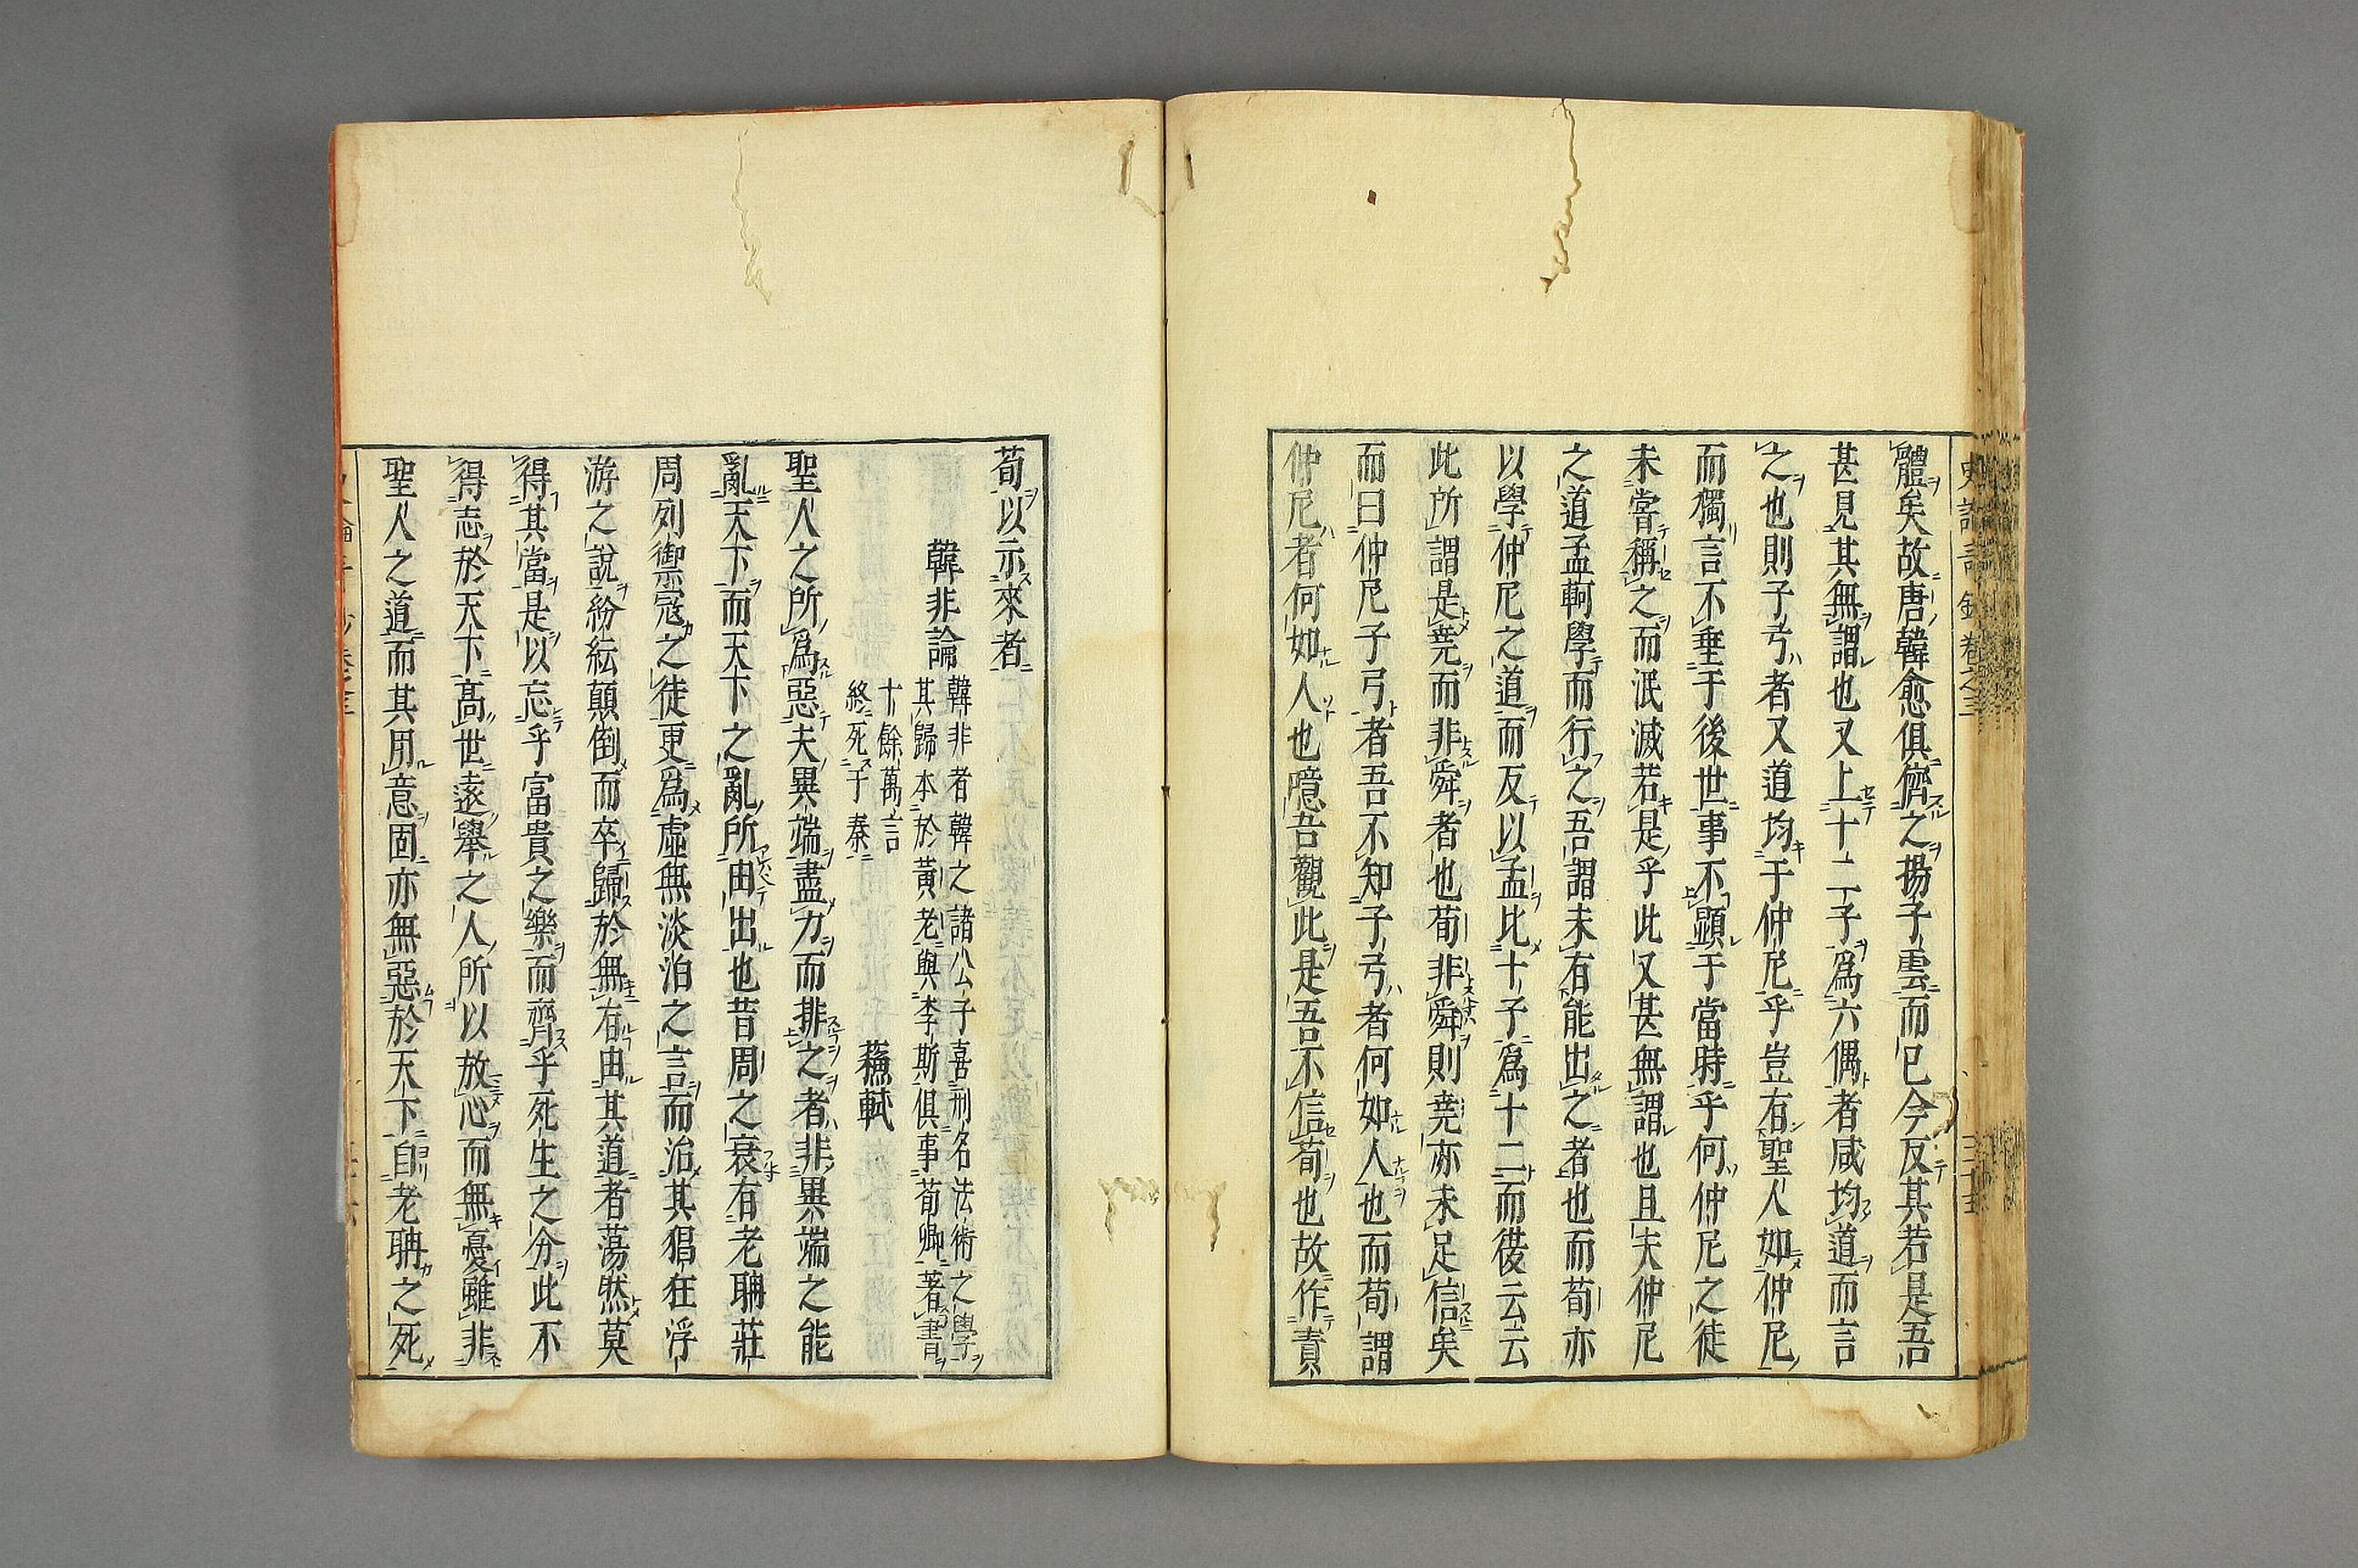 體矣故唐韓愈俱儕之揚子雲而已今反其若是吾
甚見其無謂也又上十二子爲六偶者咸均道而言
之也則子弓者又道均于仲尼乎豈有聖人如仲尼
而獨言不垂于後世事不顯于當時乎何仲尼之徒
未嘗稱之而泯滅若是乎此又甚無謂也且夫仲尼
之道孟軻學而行之吾謂未有能出之者也而荀亦
以學仲尼之道而反以孟比十子爲十二而復云云
此所謂是尭而非舜者也荀非舜則尭亦未足信矣
而曰仲尼子弓者吾不知子弓者何如人也而荀謂
仲尼者何如人也噫吾觀此是吾不信荀也故作責
荀以示來者
韓非論
韓非者韓之諸公子喜刑名法術之學
其歸本於黃老與李斯俱事荀卿著書
十餘萬言
終死于秦
蘓軾
聖人之所爲惡夫異端盡力而排之者非異端之能
亂天下而天下之亂所由出也昔周之衰有老聃莊
周列禦冦之徒更爲虛無淡泊之言而治其猖狂浮
游之說紛紜顛倒而卒歸於無有由其道者蕩然莫
得其當是以忘乎富貴之樂而齊乎死生之分此不
得志於天下高世遠舉之人所以放心而無憂雖非
聖人之道而其用意固亦無惡於天下自老聃之死